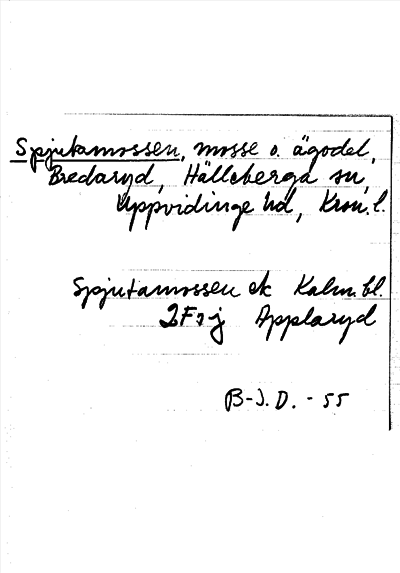 Spjutamossen, mosse o. ägodel,
Bredaryd, Hälleberga sn,
Uppvidinge hd, Kron. l.
Spjutamossen ek Kalm. bl.
2F7j Applaryd
B-J.D. - 55